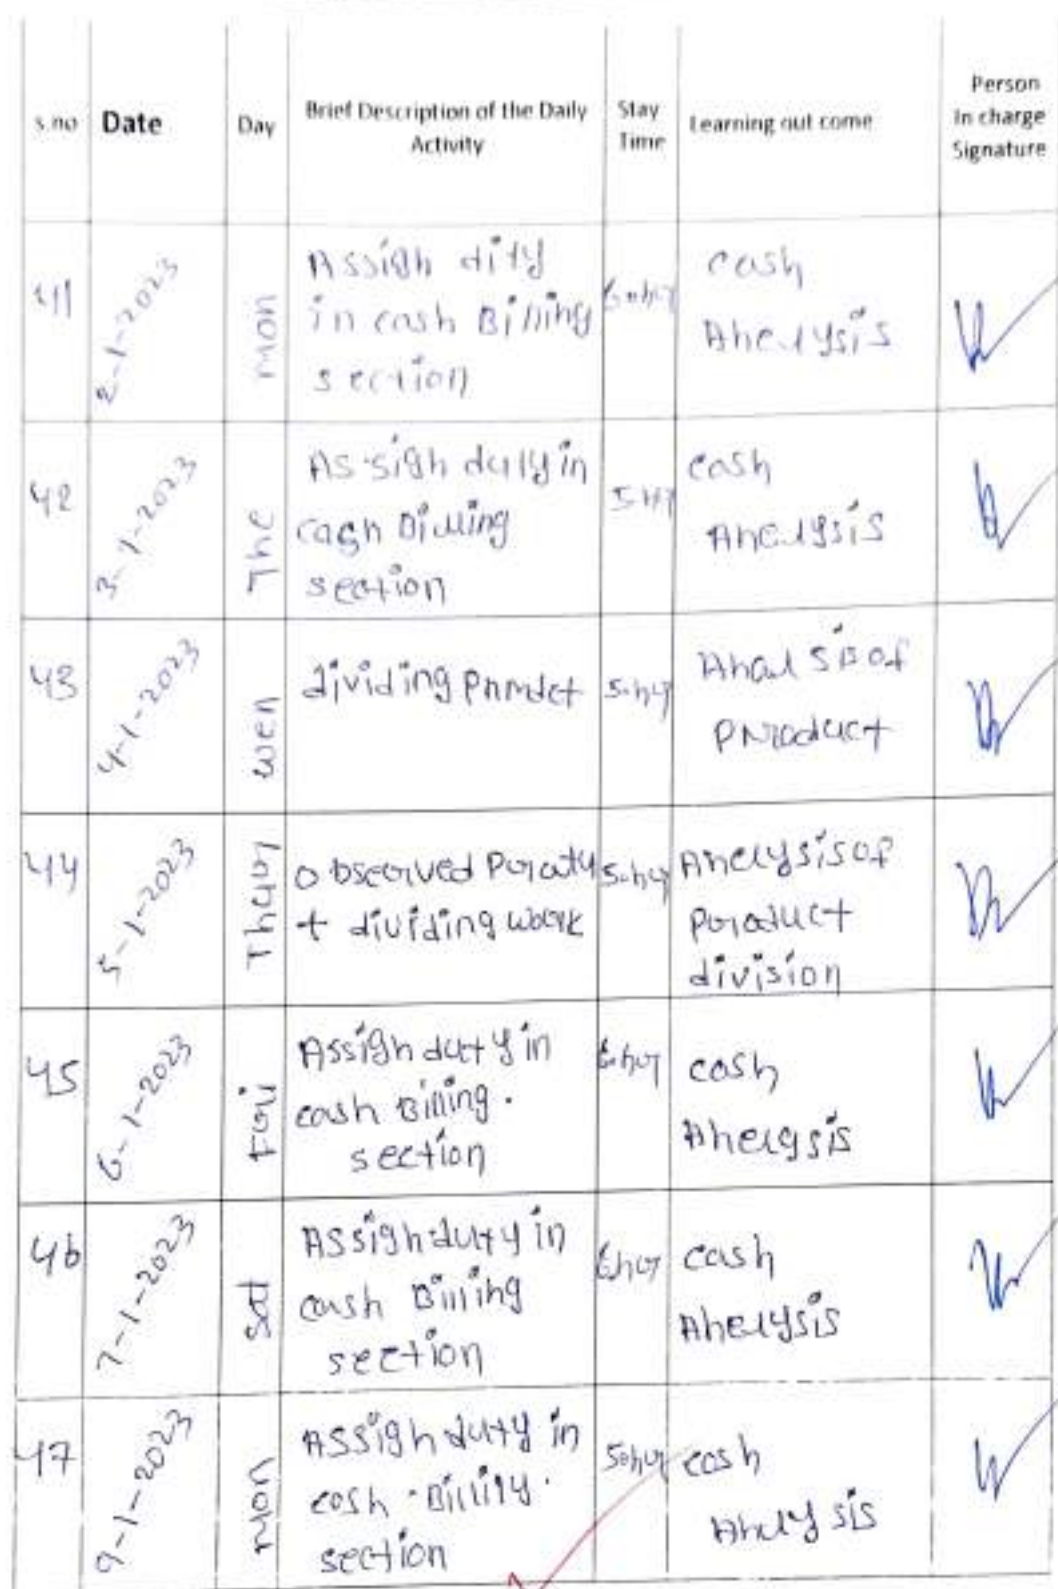 s.no Date Day Brief Description of the Daily Activity Stay Time Learning out come Person In charge Signature
41 2-1-2023 mon Assigh dity in cash Billing section cash Anelysis
42 3-1-2023 The Assigh duty in cash Billing section 5 hr cash Anelysis
43 4-1-2023 wen dividing Pnmdct 5.hr Anal sis of Pnroduct
44 5-1-2023 Thur observed Poraty + dividing work 5.hr Anelysis of Poroduct division
45 6-1-2023 Fri Assigh duty in cash Billing. section hr cash Anelysis
46 7-1-2023 sat Assigh duty in cash Billing section hr cash Anelysis
47 9-1-2023 mon Assigh duty in cash Billing. section 5 hr cash Anelysis